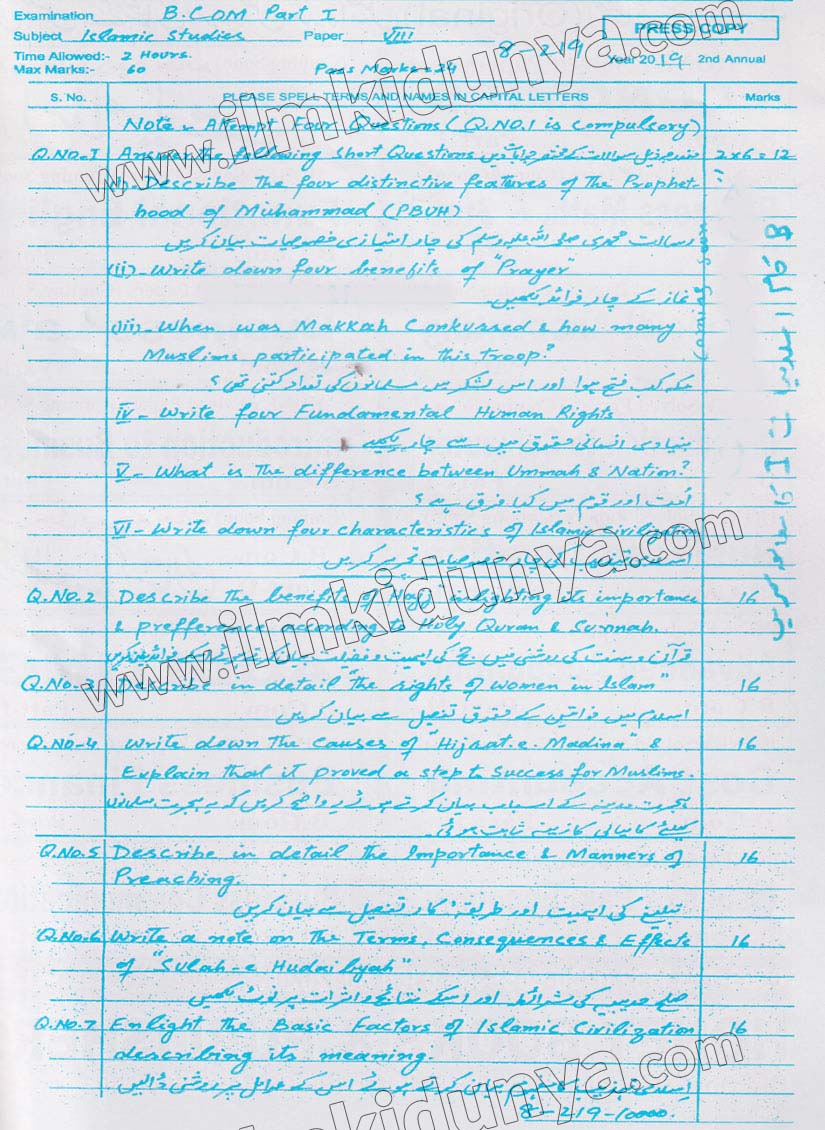 Examination B.COM Part I
Subject Islamic Studies Paper VIII
PRESS COPY
Time Allowed:- 2 Hours.
8-219
Year 2019 2nd Annual
Max Marks:- 60 Pass Marks = 24
S. No. PLEASE SPELL TERMS AND NAMES IN CAPITAL LETTERS Marks
Note - Attempt Four Questions (Q.NO.1 is Compulsory)
Q.NO-I Answer the following short Questions 2x6=12
i)- Describe the four distinctive features of the Prophet-
hood of Muhammad (PBUH)
رسالت محمدی صلی اللہ علیہ وسلم کی چار امتیازی خصوصیات بیان کریں
(ii)- Write down four benefits of "Prayer"
نماز کے چار فوائد لکھیں۔
(iii)- When was Makkah Conkussed & how many
Muslims participated in this troop?
مکہ کب فتح ہوا اور اس لشکر میں مسلمانوں کی تعداد کتنی تھی؟
iv- Write four Fundamental Human Rights
بنیادی انسانی حقوق میں سے چار لکھیے
V- What is the difference between Ummah & Nation?
اُمت اور قوم میں کیا فرق ہے؟
VI- Write down four characteristics of Islamic Civilization
تحریر کریں
Q.No.2 Describe the benefits of Hajj inlighting its importance 16
& prefference according to Holy Quran & Sunnah.
قرآن و سنت کی روشنی میں حج کی اہمیت و فضیلت بیان
Q.No-3 Describe in detail the rights of women in Islam" 16
اسلام میں خواتین کے حقوق تفصیل سے بیان کریں
Q.NO-4 Write down the causes of "Hijrat.e.Madina" & 16
Explain that it proved a step to Success for Muslims.
ہجرت مدینہ کے اسباب بیان کرتے ہوئے واضح کریں کہ یہ ہجرت مسلمانوں
کیلئے کامیابی کا زینہ ثابت ہوئی۔
Q.No.5 Describe in detail the Importance & Manners of 16
Preaching.
تبلیغ کی اہمیت اور طریقہ کار تفصیل سے بیان کریں
Q.No.6 Write a note on the Terms, Consequences & Effects 16
of "Sulah-e Hudaibyah"
صلح حدیبیہ کی شرائط اور اسکے نتائج و اثرات پر نوٹ لکھیں
Q.No.7 Enlight the Basic Factors of Islamic Civilization 16
describing its meaning.
بیان کرتے ہوئے اس کے عوامل پر روشنی ڈالیں
8-219-10000.
www.ilmkidunya.com
www.ilmkidunya.com
www.ilmkidunya.com
ilmkidunya.com